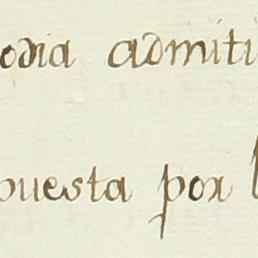 odia admiti
puesta por l